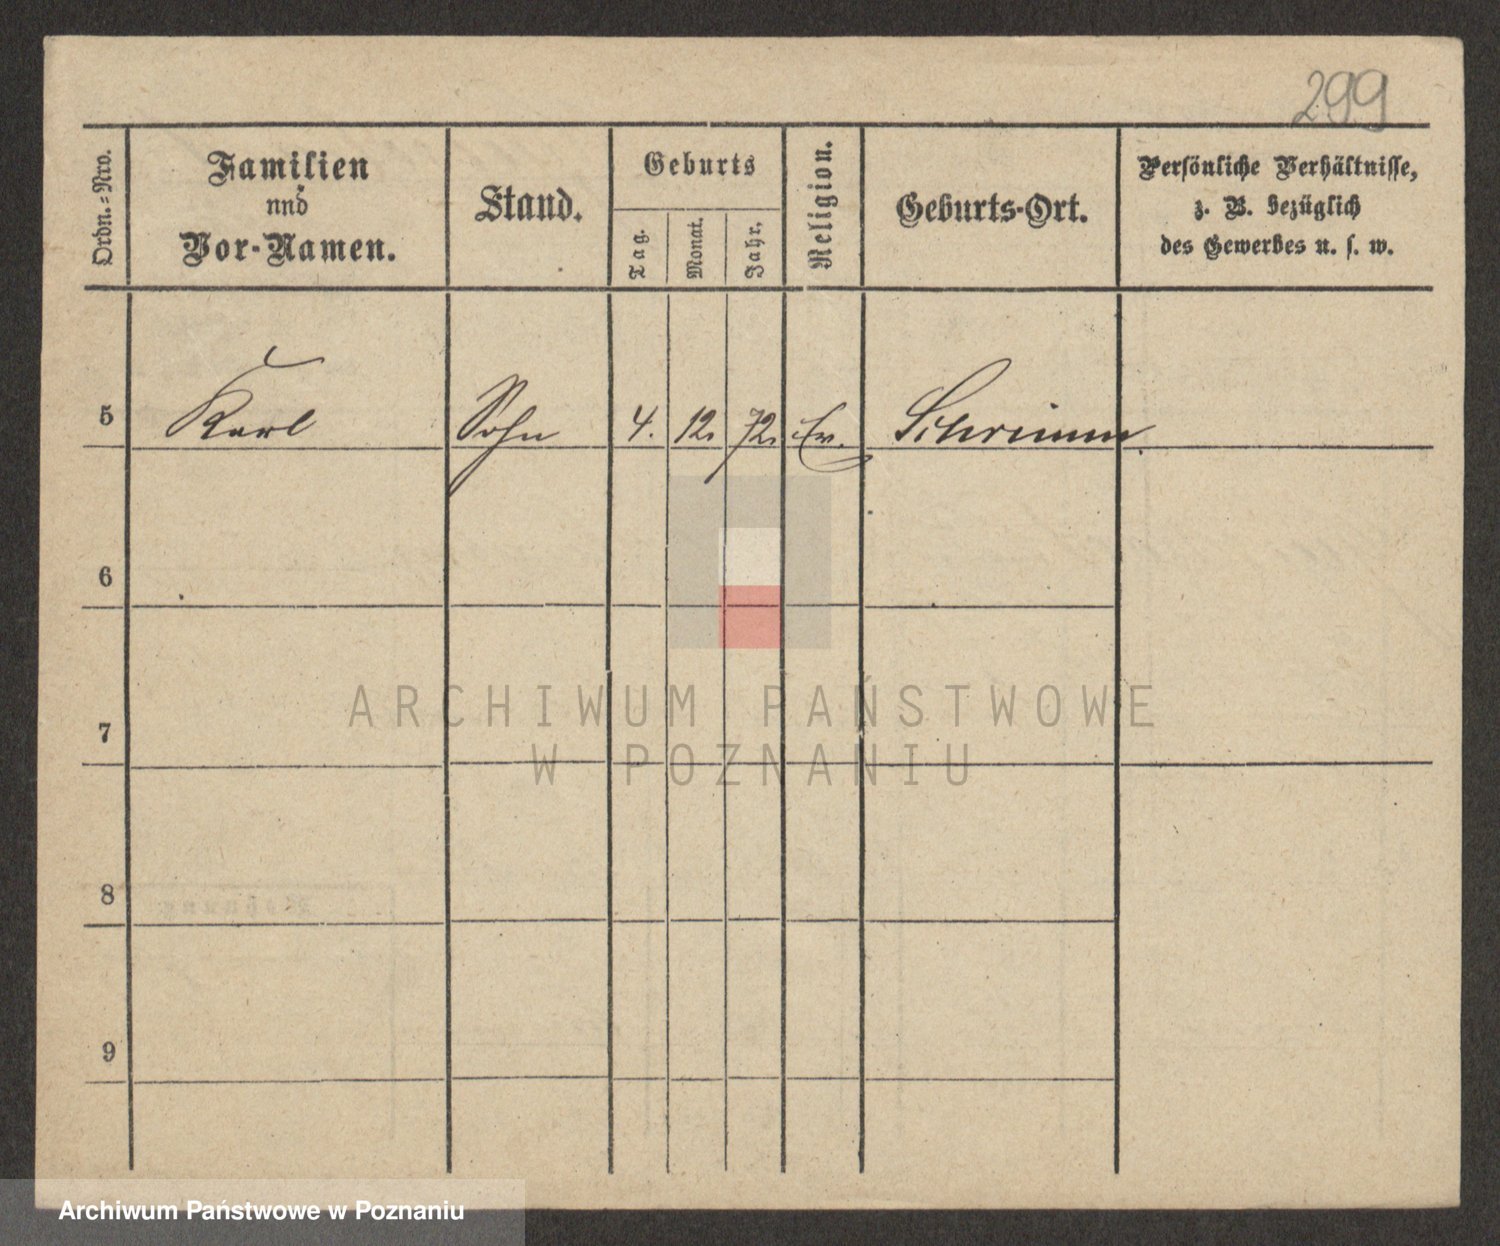 299
Ordn.=Nro.
Familien
und
Vor-Namen.
Stand.
Geburts
Tag.
Monat.
Jahr.
Religion.
Geburts-Ort.
Persönliche Verhältnisse,
z. B. bezüglich
des Gewerbes u. s. w.
5 Karl Sohn 4. 12. 72. Ev. Schrimm
6
7
8
9
ARCHIWUM PAŃSTWOWE
W POZNANIU
Archiwum Państwowe w Poznaniu